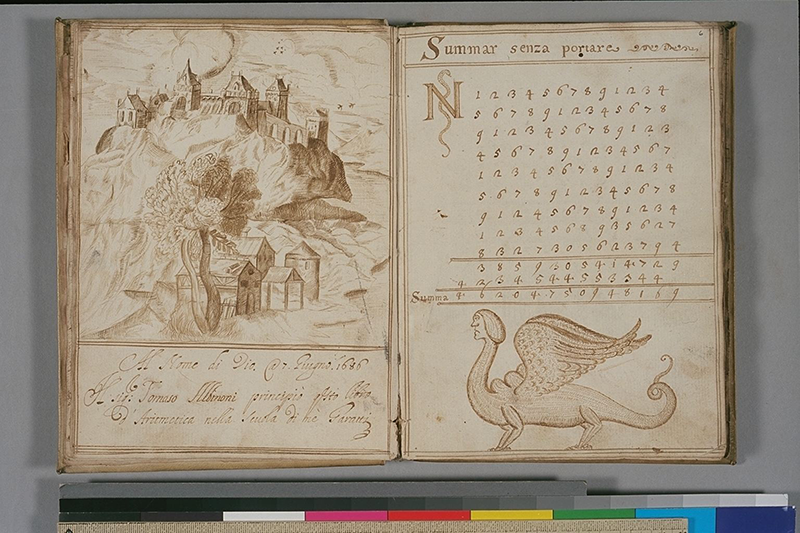 Al Nome di Dio. @ 7. Giugno. 1686
Il sigr. Tomaso Albinoni principiò qsto libro
D'Aritmetica nella Scuola di me
6
Summar senza portare
N 1 2 3 4 5 6 7 8 9 1 2 3 4
5 6 7 8 9 1 2 3 4 5 6 7 8
9 1 2 3 4 5 6 7 8 9 1 2 3
4 5 6 7 8 9 1 2 3 4 5 6 7
1 2 3 4 5 6 7 8 9 1 2 3 4
5 6 7 8 9 1 2 3 4 5 6 7 8
9 1 2 4 5 6 7 8 9 1 2 3 4
1 2 3 4 5 6 8 9 3 5 6 2 7
8 3 2 7 3 0 5 6 2 3 7 9 4
3 8 5 9 3 0 5 4 1 4 7 2 9
4 2 3 4 5 4 4 5 5 3 5 4 4
Summa 4 6 2 0 4 7 5 0 9 4 8 1 6 9